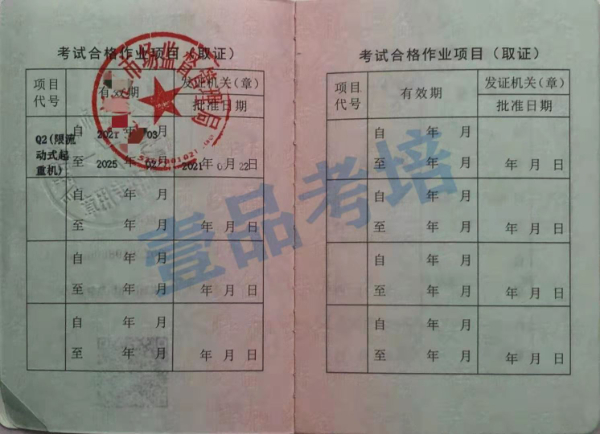 考试合格作业项目（取证）
项目代号
有效期
发证机关(章)
批准日期
Q2(限流动式起重机)
自 2021 年 03
至 2025 年 02
2021 年 月 22 日
自 年 月
至 年 月
年 月 日
自 年 月
至 年 月
年 月 日
自 年 月
至 年 月
年 月 日
市场监督管理局
考试合格作业项目（取证）
项目代号
有效期
发证机关(章)
批准日期
自 年 月
至 年 月
年 月 日
自 年 月
至 年 月
年 月 日
自 年 月
至 年 月
年 月 日
自 年 月
至 年 月
年 月 日
壹品考培